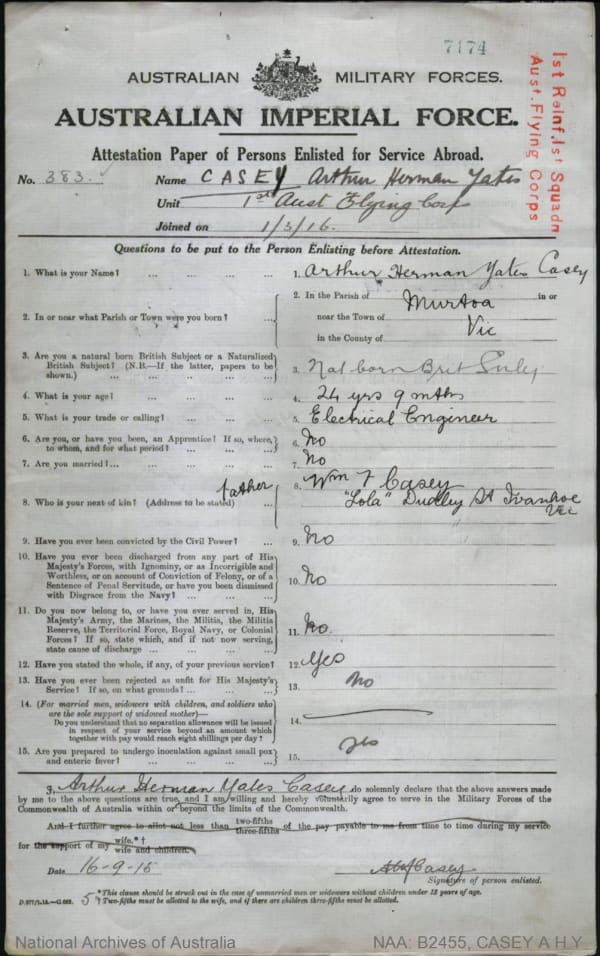 7174
AUSTRALIAN MILITARY FORCES.
AUSTRALIAN IMPERIAL FORCE.
1st Reinf. 1st Squadn
Aust. Flying Corps
Attestation Paper of Persons Enlisted for Service Abroad.
No. 383. Name CASEY Arthur Herman Yates
Unit 1st Aust Flying Corps
Joined on 1/3/16.
Questions to be put to the Person Enlisting before Attestation.
1. What is your Name? ... ... ... ... 1. Arthur Herman Yates Casey
2. In or near what Parish or Town were you born? ... 2. In the Parish of Murtoa in or
near the Town of
in the County of Vic
3. Are you a natural born British Subject or a Naturalized
British Subject? (N.B.—If the latter, papers to be
shown.) ... ... ... ... ... 3. Nat born Brit
4. What is your age? ... ... ... ... 4. 24 yrs 9 mths
5. What is your trade or calling? ... ... ... 5. Electrical Engineer
6. Are you, or have you been, an Apprentice? If so, where,
to whom, and for what period? ... ... ... 6. No
7. Are you married? ... ... ... ... 7. No
8. Who is your next of kin? (Address to be stated) ... father 8. Wm Casey
"Lola" Dudley St Ivanhoe
Vic
9. Have you ever been convicted by the Civil Power? ... 9. No
10. Have you ever been discharged from any part of His
Majesty's Forces, with Ignominy, or as Incorrigible and
Worthless, or on account of Conviction of Felony, or of a
Sentence of Penal Servitude, or have you been dismissed
with Disgrace from the Navy? ... ... ... 10. No
11. Do you now belong to, or have you ever served in, His
Majesty's Army, the Marines, the Militia, the Militia
Reserve, the Territorial Force, Royal Navy, or Colonial
Forces? If so, state which, and if not now serving,
state cause of discharge ... ... ... ... 11. No.
12. Have you stated the whole, if any, of your previous service? 12. Yes
13. Have you ever been rejected as unfit for His Majesty's
Service? If so, on what grounds? ... ... ... 13. No
14. (For married men, widowers with children, and soldiers who
are the sole support of widowed mother)—
Do you understand that no separation allowance will be issued
in respect of your service beyond an amount which
together with pay would reach eight shillings per day? 14.
15. Are you prepared to undergo inoculation against small pox
and enteric fever? ... ... ... ... 15. Yes
I, Arthur Herman Yates Casey do solemnly declare that the above answers made
by me to the above questions are true, and I am willing and hereby voluntarily agree to serve in the Military Forces of the
Commonwealth of Australia within or beyond the limits of the Commonwealth.
And I further agree to allot not less than two-fifths three-fifths of the pay payable to me from time to time during my service
for the support of my wife.*† wife and children.
Date 16-9-15 Casey
Signature of person enlisted.
*This clause should be struck out in the case of unmarried men or widowers without children under 18 years of age.
† Two-fifths must be allotted to the wife, and if there are children three-fifths must be allotted.
National Archives of Australia NAA: B2455, CASEY A H Y